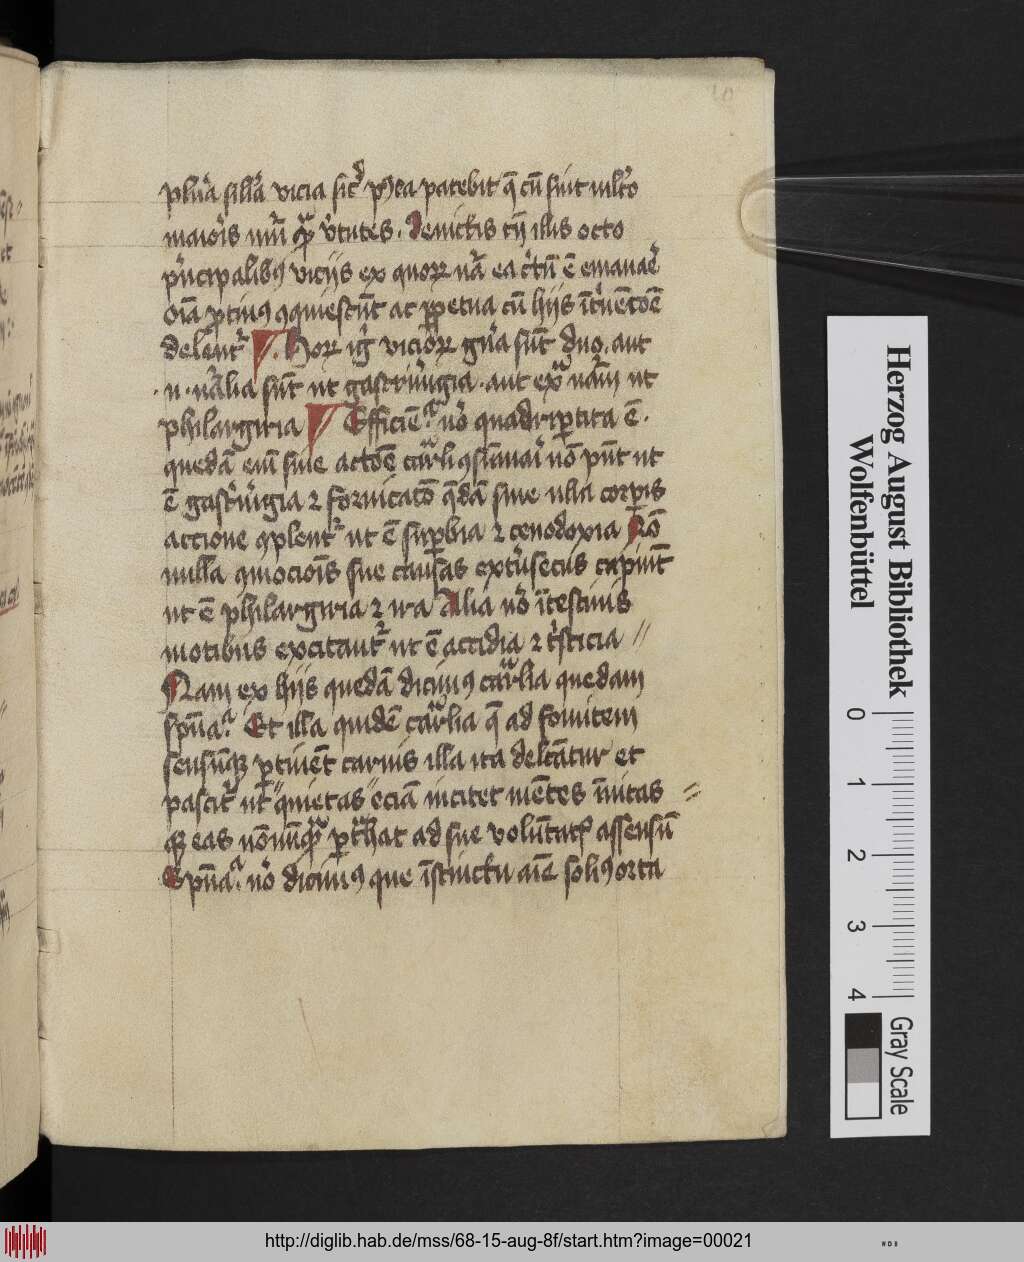 10
plura silla vicia sic postea patebit que cum sint multo
maioris numeri quam virtutes. Devictis tamen illis octo
principalibus viciis ex quorum natura ea certum est emanare
omnia protinus conquiescunt ac perpetua cum hiis intericione
delentur Horum igitur viciorum genera sunt duo. aut
naturalia sunt ut gastrimargia. aut extra naturam ut
philargiria Efficiencia vero quadripertita est.
quedam enim sine actione carnali consummari non possunt ut
est gastrimargia et fornicatio quedam sine ulla corporis
accione complentur ut est superbia et cenodoxia
nulla commocionis sue causas extrinsecus capiunt
ut est philargiria et ira Alia vero intestinis
motibus excitantur ut est accidia et tristicia
Nam ex hiis quedam dicimus carnalia quedam
spiritualia Et illa quidem carnalia que ad fomitem
sensumque pertinent carnis illa ita delectatur et
pascitur ut quietas eciam incitet mentes invitas
que eas nonnumquam pertrahat ad sue voluntatis assensum
Spiritualia vero dicimus que instinctu anime solius orta
Herzog August Bibliothek
Wolfenbüttel
0 1 2 3 4
Gray Scale
http://diglib.hab.de/mss/68-15-aug-8f/start.htm?image=00021